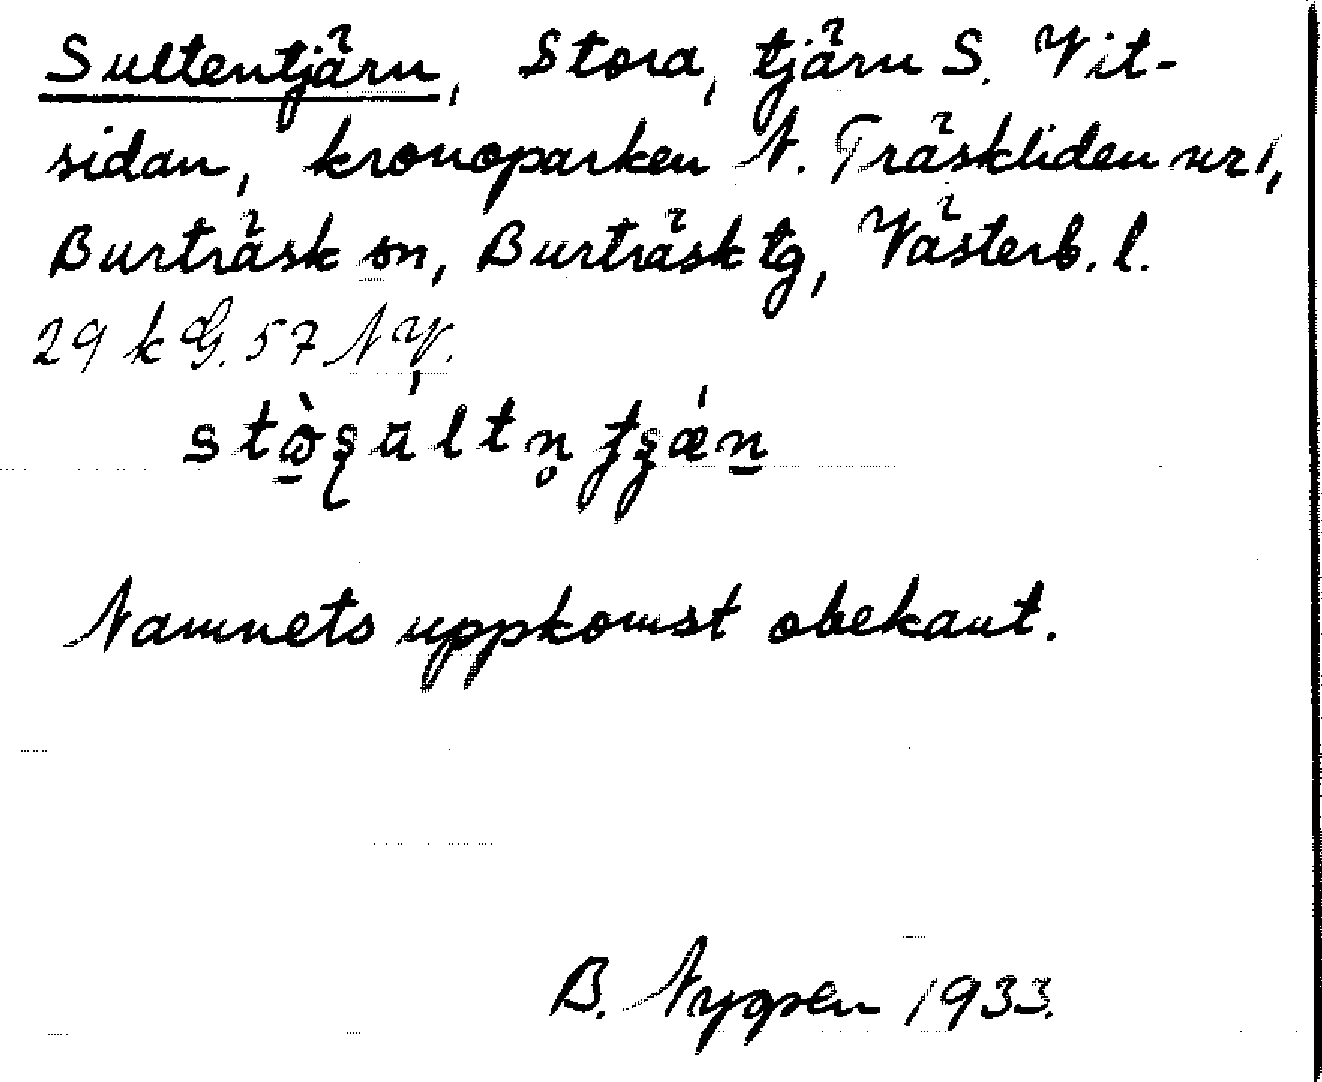 Sultentjärn, Stora, tjärn S. Vit-
sidan, kronoparken N. Träskliden nr 1,
Burträsk sn, Burträsk tg, Västerb. l.
29 k G. 57 NV.
Namnets uppkomst obekant.
B. Nygren 1933.